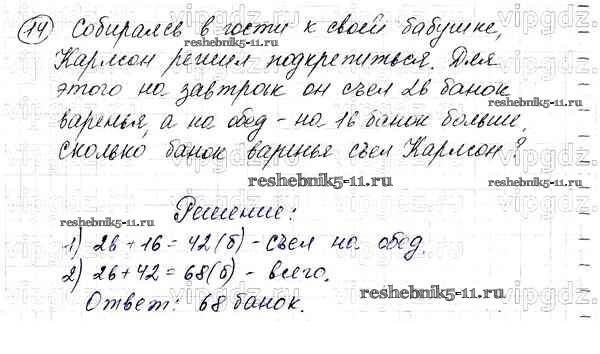 14 Собираясь в гости к своей бабушке,
reshebnik5-11.ru
Карлсон решил подкрепиться. Для
этого на завтрак он съел 26 банок
reshebnik5-11.ru
варенья, а на обед - на 16 банок больше,
сколько банок варенья съел Карлсон?
reshebnik5-11.ru
reshebnik5-11.ru
Решение:
1) 26 + 16 = 42 (б) - съел на обед.
2) 26 + 42 = 68 (б) - всего.
Ответ: 68 банок.
reshebnik5-11.ru
vipgdz.